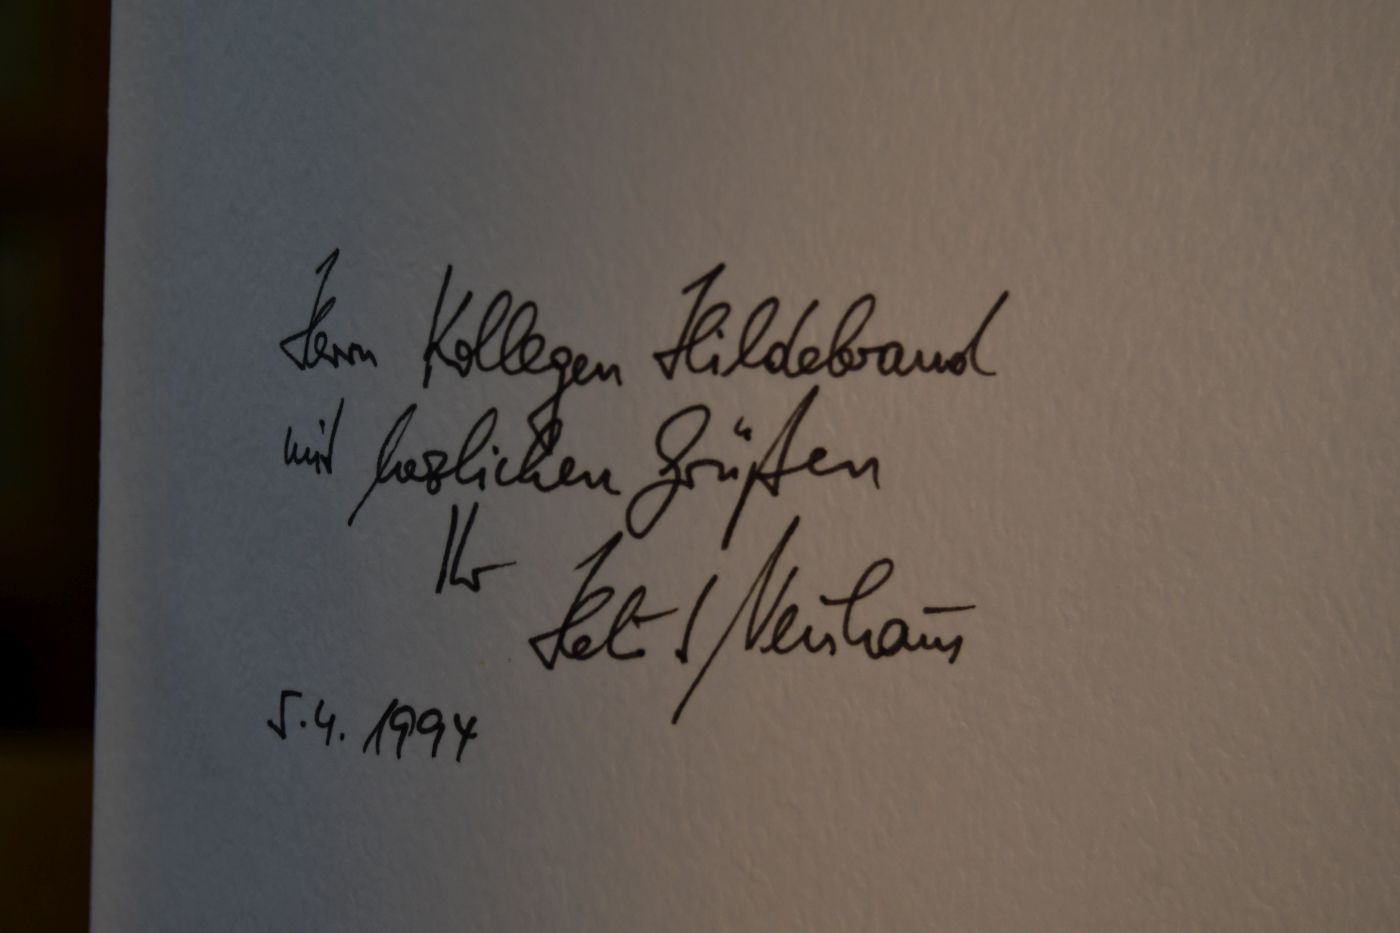 Herrn Kollegen Hildebrand
mit herzlichen Grüßen
Ihr
Neuhaus
5.4.1994